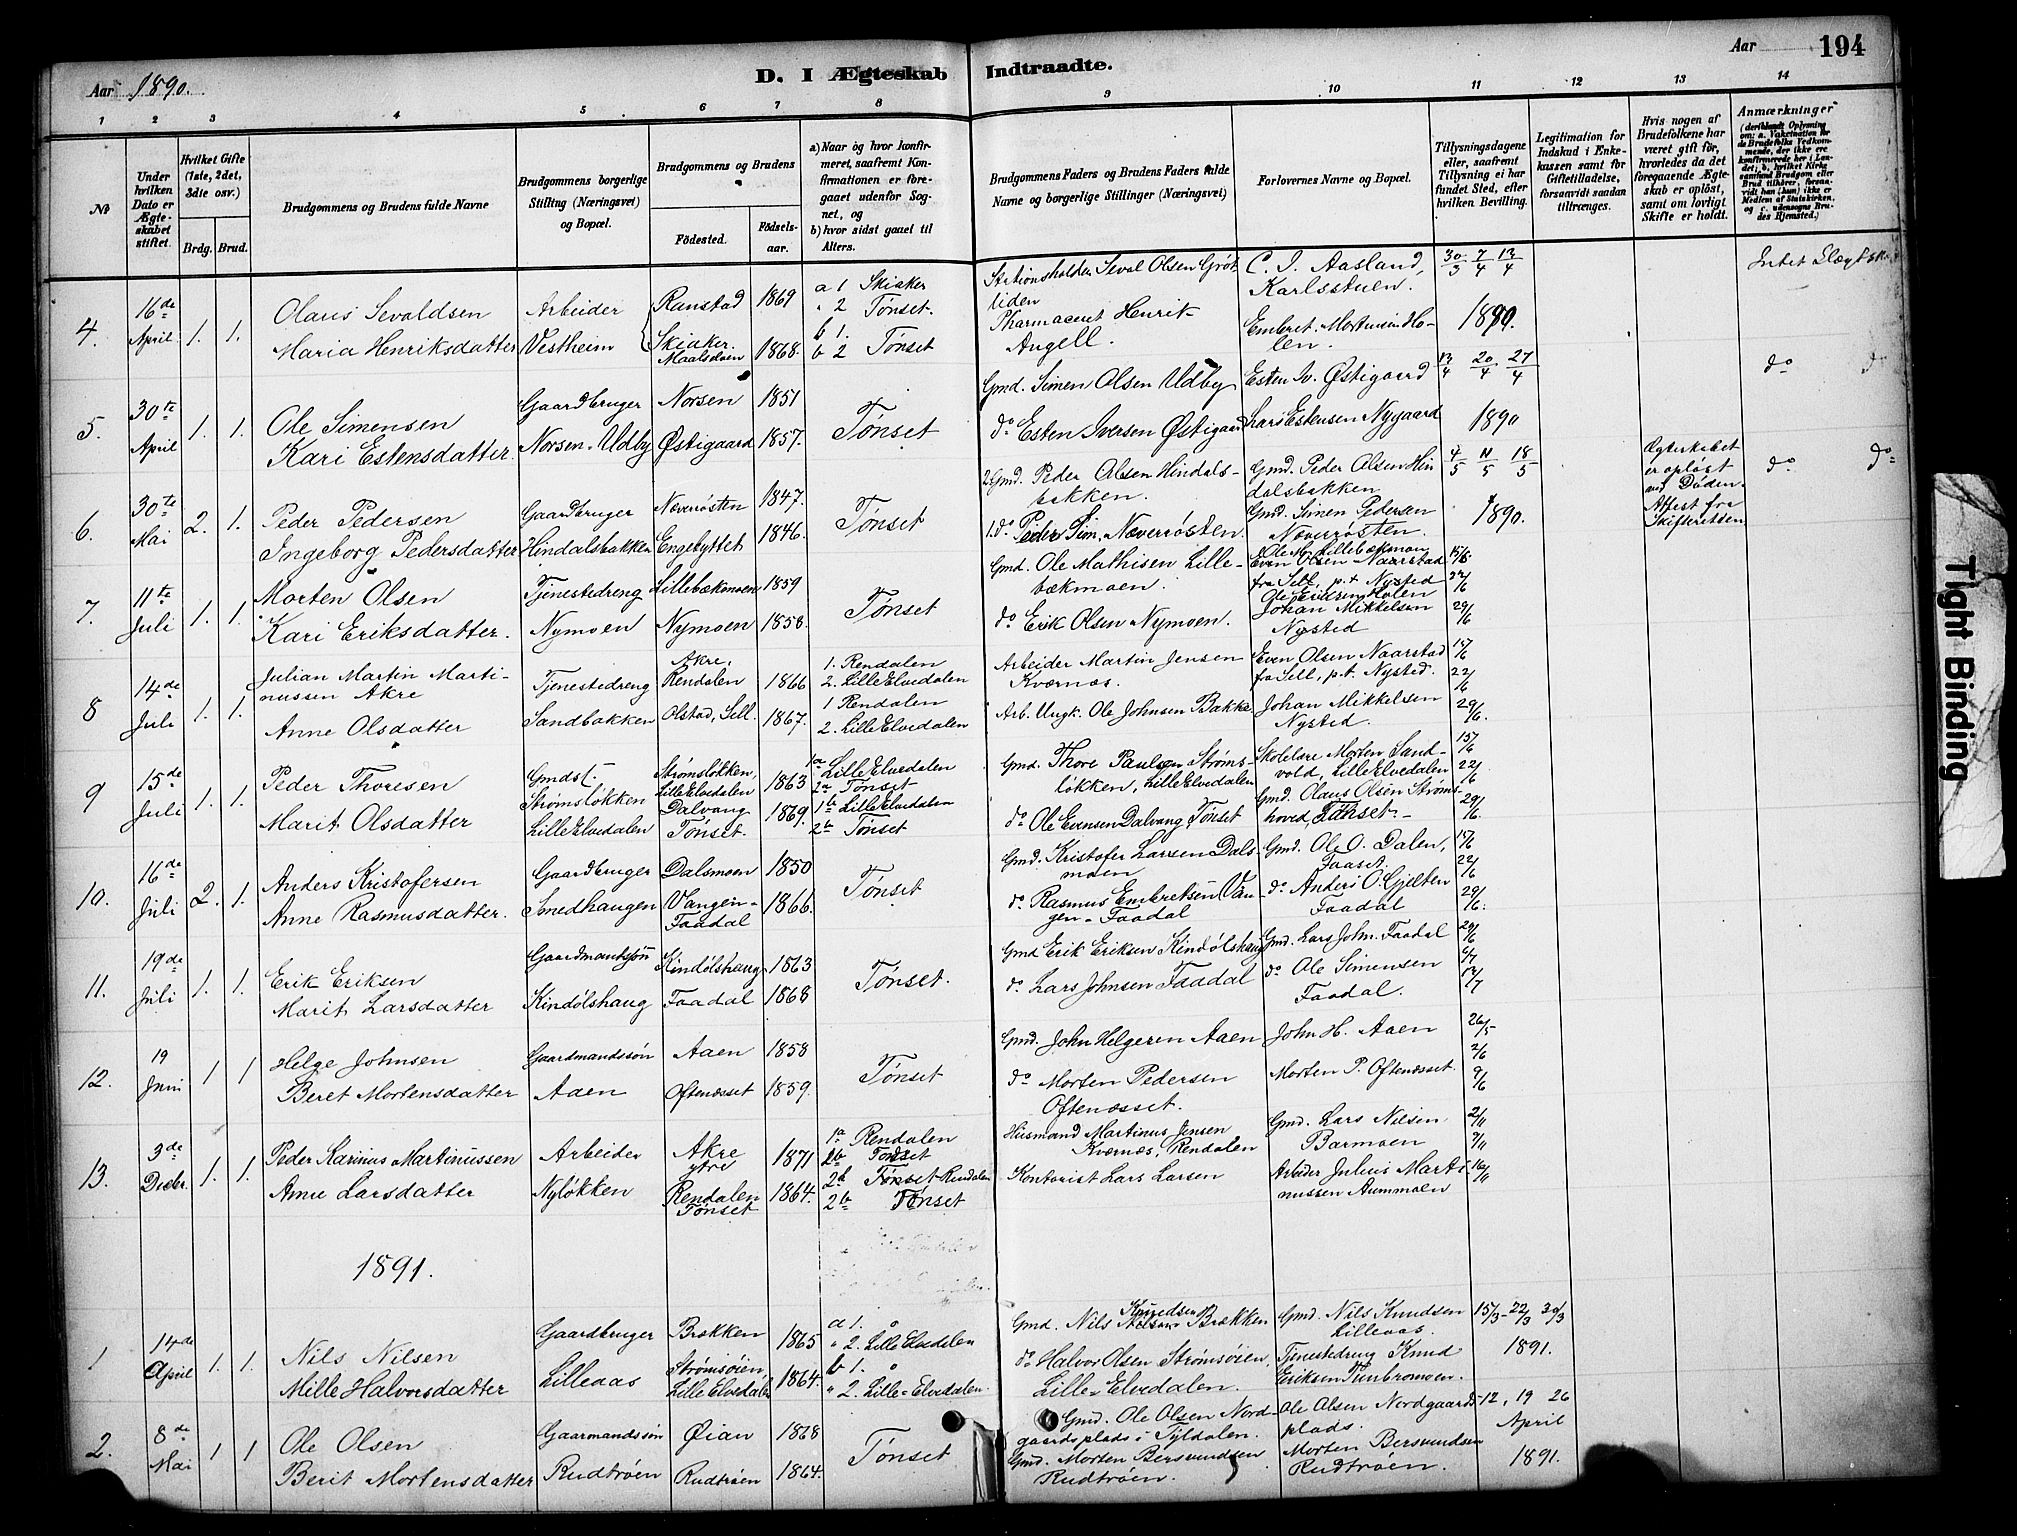 Aar 1890.
D. I Ægteskab Indtraadte.
Aar 194
1 2 3 4 5 6 7 8 9 10 11 12 13 14
№
Under hvilken Dato er Ægteskabet stiftet.
Hvilket Gifte (1ste, 2det, 3die osv.)
Brdg. Brud.
Brudgommens og Brudens fulde Navne
Brudgommens borgerlige Stilling (Næringsvei) og Bopæl.
Brudgommens og Brudens
Födested. Födselsaar.
a) Naar og hvor konfirmeret, saafremt Konfirmationen er foregaaet udenfor Sognet, og
b) hvor sidst gaaet til Alters.
Brudgommens Faders og Brudens Faders fulde Navne og borgerlige Stillinger (Næringsvei)
Forlovernes Navne og Bopæl.
Tillysningsdagene eller, saafremt Tillysning ei har fundet Sted, efter hvilken Bevilling.
Legitimation for Indskud i Enkekassen samt for Giftetilladelse, forsaavidt saadan tiltrænges.
Hvis nogen af Brudefolkene har været gift før, hvorledes da det foregaaende Ægteskab er opløst, samt om lovligt Skifte er holdt.
Anmærkninger
4. 16de April 1. 1. Olaus Sevaldsen Arbeider Ranstad 1869 a 1 Skiaker
Maria Henriksdatter Vestheim Skiaker. Maalselven 1868. " 2 Tønset. b 1. b 2 Tønset
Stationsholder Seval Olsen Grøtliden C. J. Aasland, Karlsstuen. 30/3 7/4 13/4
Pharmaceut Henrik Angell. Embret Mortensen Holen. 1890.
5. 30te April 1. 1. Ole Simensen Gaardbruger Norsen 1851 Tønset
Kari Estensdatter. Norsen-Udby Østigaard 1857.
Gmd. Simen Olsen Udby Esten Iv. Østigaard 13/4 20/4 27/4 do do
do Esten Iversen Østigaard Lars Estensen Nygaard 1890
6. 30te Mai 2. 1. Peder Pedersen Gaardbruger Næverøsten 1847. Tønset
Ingeborg Pedersdatter Hindalsbakken Engebyttet 1846.
Gmd. Peder Olsen Hindalsbakken. Gmd. Peder Olsen Hindalsbakken 4/5 11/5 18/5
1. do Peder Sim. Næverrøsten. Gmd. Simen Pedersen Næverrøsten. 1890.
Ægteskabet er opløst ved Døden. Attest fra Skifteretten do do
7. 11te Juli 1. 1. Morten Olsen Tjenestedreng Lillebækmoen 1859 Tønset
Kari Eriksdatter. Nymoen Nymoen 1858.
Gmd. Ole Mathisen Lillebækmoen. Ole M. Lillebækmoen Even Olsen Naarstad fra Sell, p.t. Nysted 15/6 22/6
do Erik Olsen Nymoen. Johan Mikkelsen Nysted 29/6
8 14de Juli 1. 1. Julian Martin Martinussen Akre Tjenestedreng Akre, Rendalen 1866 1. Rendalen 2. LilleElvedalen
Anne Olsdatter Sandbakken Olstad, Sell. 1867. 1 Rendalen 2. LilleElvedalen
Arbeider Martin Jensen Kværnæs. Even Olsen Naarstad fra Sell, p.t. Nysted. 15/6 22/6
Arb. Ungk. Ole Johnsen Bakke. Johan Mikkelsen Nysted. 29/6.
9 15de Juli 1. 1. Peder Thoresen Gmdst. Strømsløkken, LilleElvedalen 1863 1a LilleElvedalen 2a Tønset
Marit Olsdatter Strømsløkken LilleElvedalen Dalvang Tønset. 1869. 1b LilleElvedalen 2b Tønset
Gmd. Thore Paulsen Strømsløkken, LilleElvedalen Skolelærer Morten Sandvold, LilleElvedalen 15/6 22/6
do Ole Evensen Dalvang, Tønset Gmd. Olaus Olsen Strømshoved, Tønset. 29/6.
10. 16de Juli 2. 1. Anders Kristofersen Gaardbruger Dalsmoen 1850 Tønset
Anne Rasmusdatter. Smedhaugen Vangen-Faadal 1866.
Gmd. Kristofer Larsen Dalsmoen Gmd. Ole O. Dalen, Faaset. 15/6 22/6
do. Rasmus Embretsen Vangen-Faadal do Anders O. Gjelten Faadal 29/6.
11. 19de Juli 1. 1. Erik Eriksen Gaardmandssøn Kindølshaug 1863 Tønset.
Marit Larsdatter Kindølshaug Faadal 1868
Gmd Erik Eriksen Kindølshaug Gmd. Lars John. Faadal 29/6 6/7
do Lars Johnsen Faadal do Ole Simensen Faadal. 13/7
12. 19 Juni 1 1 Helge Johnsen Gaardmandssøn Aaen 1858 Tønset
Beret Mortensdatter Aaen Oftenæsset 1859.
Gmd. John Helgesen Aaen John H. Aaen 26/5 2/6
do Morten Pedersen Oftenæsset. Morten P. Oftenæsset. 9/6
13. 3de Decbr. 1. 1. Peder Karinus Martinussen Arbeider Akre ytre Rendalen 1871 1a Rendalen 2b Tønset
Anne Larsdatter Nyløkken Tønset 1864. 2a Tønset Rendalen 2b Tønset
Husmand Martinus Jensen Kværnæs, Rendalen Gmd. Lars Nilsen Barmoen 2/11 9/11
Kontorist Lars Larsen Arbeider Julius Martinussen Aummoen 16/11
1891.
1 14de April 1. 1. Nils Nilsen Gaardbruger Brækken 1865 a 1. " " 2. Lille Elvedalen
Mille Halvorsdatter Lilleaas Strømsøien, Lille Elvedalen 1864. b 1. " " 2. Lille-Elvedalen.
Gmd. Nils Knudsen Brækken Gmd. Nils Knudsen Lilleaas. 15/3-22/3 30/3
do Halvor Olsen Strømsøien, Lille-Elvedalen. Tjenestedreng Knud Eriksen Tunbromoen. 1891.
2. 8de Mai 1 1 Ole Olsen Gaarmandssøn Øian 1868 Tønset
Berit Mortensdatter Rudtrøen Rudtrøen 1864.
Gmd. Ole Olsen Nordgaardsplads i Tyldalen. Ole Olsen Nordgaardsplads. 12, 19 26 April
Gmd. Morten Bersvendsen Rudtrøen. Morten Bersvendsen Rudtrøen. 1891.
Tight Binding